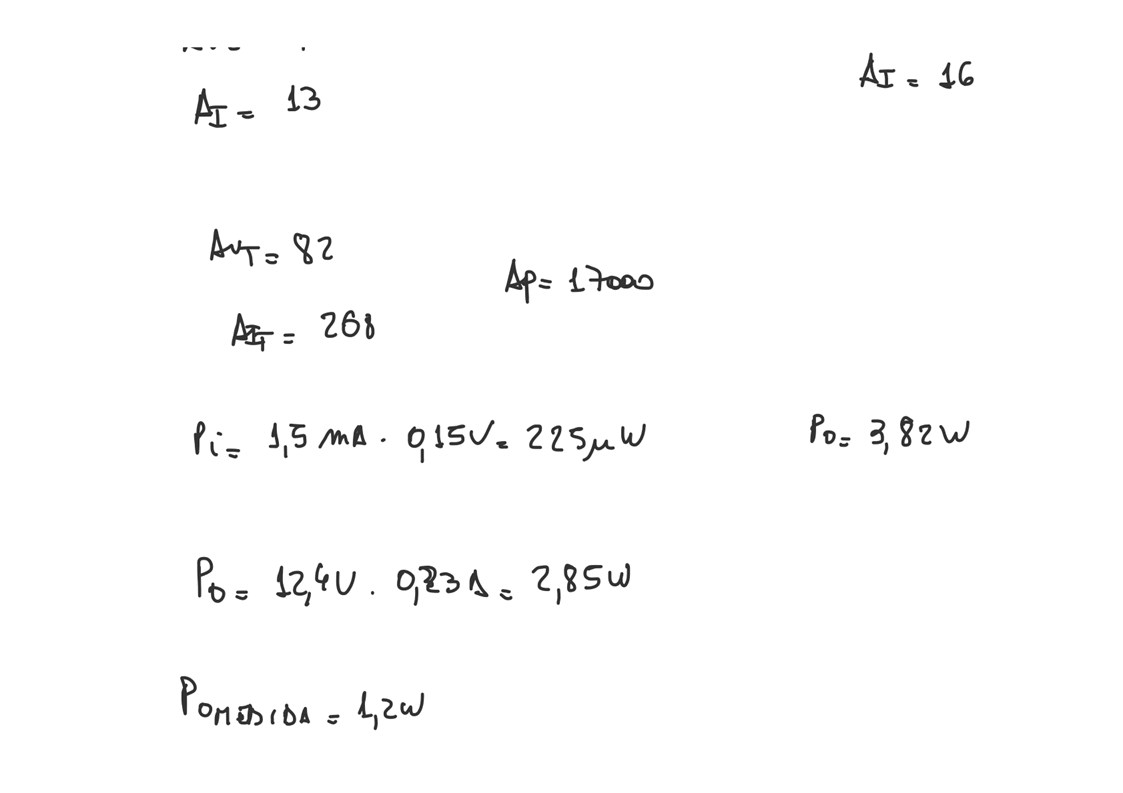 AI = 13
AI = 16
AVT = 82
AP = 17000
AIT = 268
Pi = 1,5 mA · 0,15V = 225μW
Po = 3,82W
Po = 12,4V . 0,23A = 2,85W
POMEDIDA = 1,2W